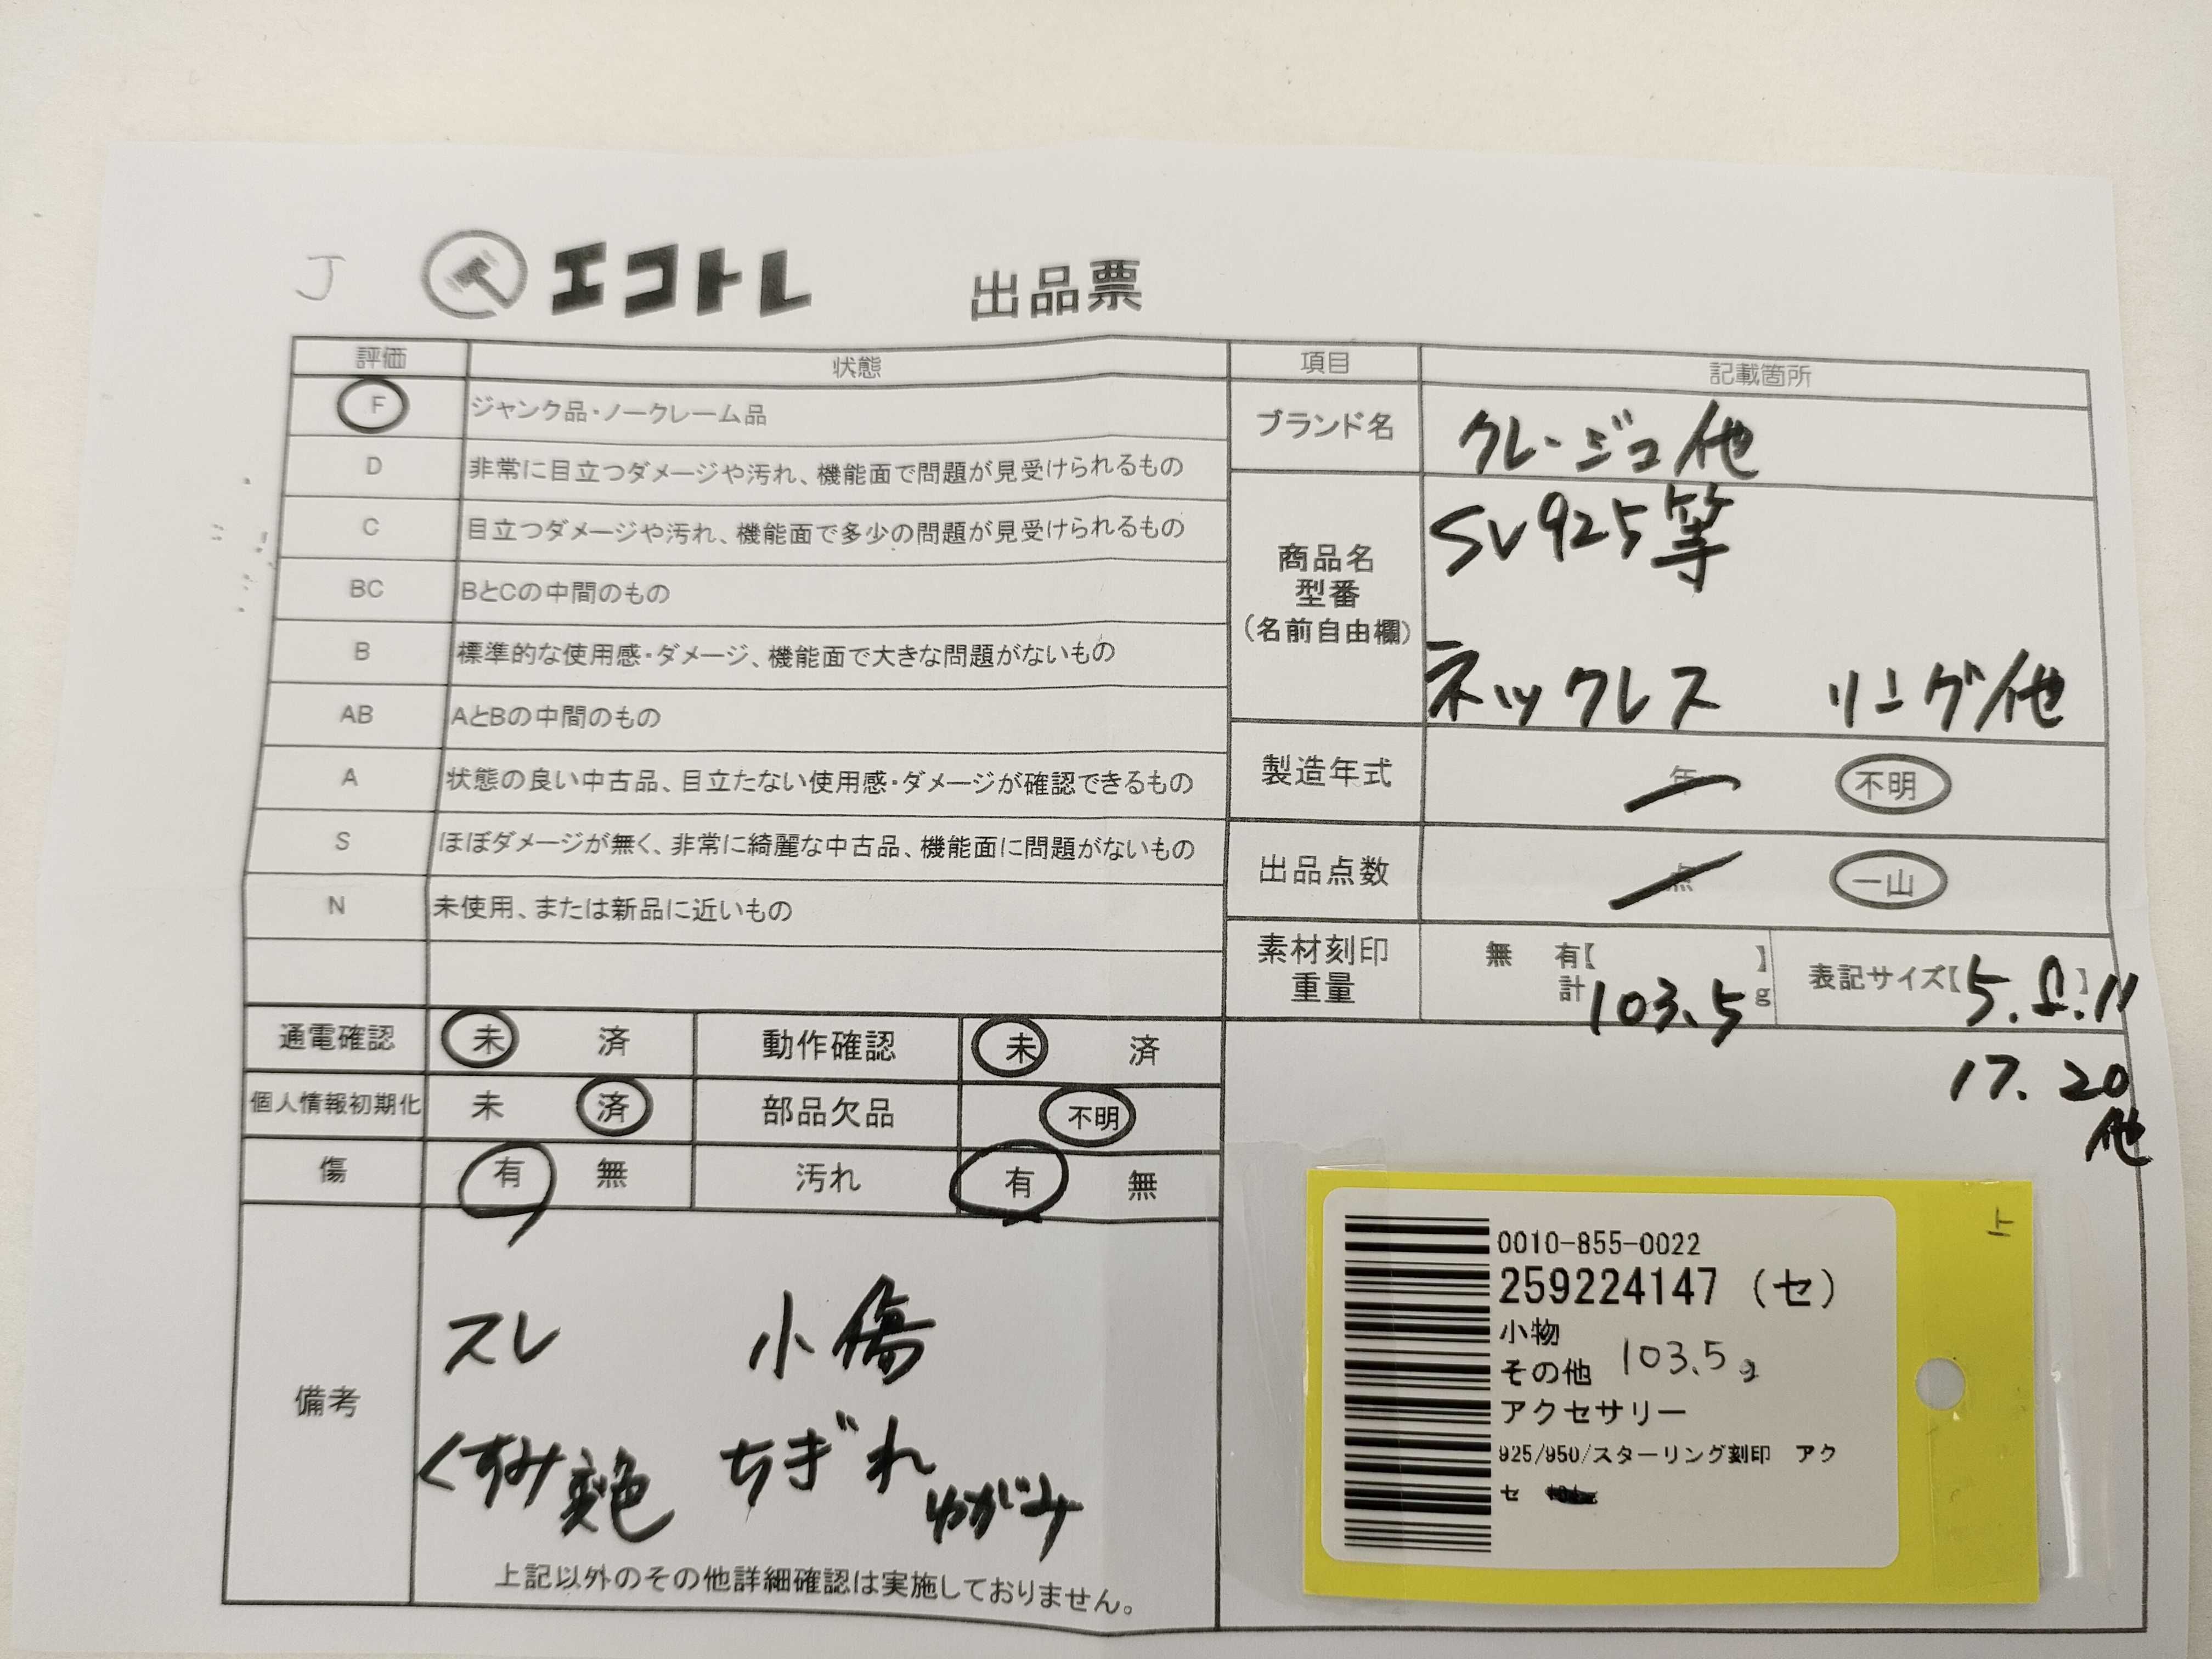 J
エコトレ 出品票
評価 状態
F ジャンク品・ノークレーム品
D 非常に目立つダメージや汚れ、機能面で問題が見受けられるもの
C 目立つダメージや汚れ、機能面で多少の問題が見受けられるもの
BC BとCの中間のもの
B 標準的な使用感・ダメージ、機能面で大きな問題がないもの
AB AとBの中間のもの
A 状態の良い中古品、目立たない使用感・ダメージが確認できるもの
S ほぼダメージが無く、非常に綺麗な中古品、機能面に問題がないもの
N 未使用、または新品に近いもの
通電確認 未 済 動作確認 未 済
個人情報初期化 未 済 部品欠品 不明
傷 有 無 汚れ 有 無
備考
スレ 小傷
くすみ 変色 ちぎれ ゆがみ
上記以外のその他詳細確認は実施しておりません。
項目 記載箇所
ブランド名 クレージュ他
商品名
型番
(名前自由欄)
SV925等
ネックレス リング他
製造年式 年 不明
出品点数 点 一山
素材刻印
重量
無 有【 】
計 103.5 g
表記サイズ【5.8.11】
17.20
他
0010-855-0022
259224147 (セ)
小物
その他 103.5g
アクセサリー
925/950/スターリング刻印 アク
セ